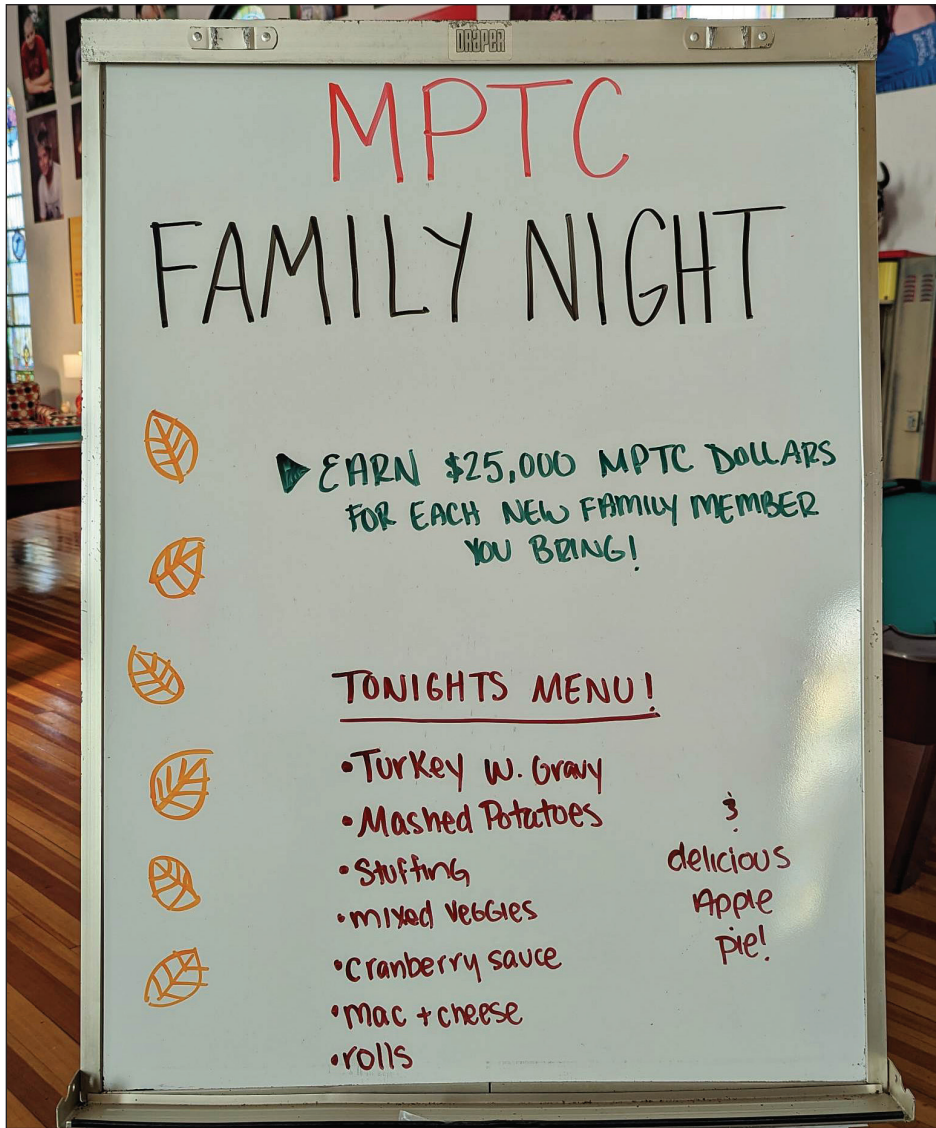 DRAPER
MPTC
FAMILY NIGHT
EARN $25,000 MPTC DOLLARS
FOR EACH NEW FAMILY MEMBER
YOU BRING!
TONIGHTS MENU!
•Turkey w. Gravy
•Mashed Potatoes
•Stuffing
•mixed veggies
•cranberry sauce
•mac + cheese
•rolls
&
delicious
Apple
pie!